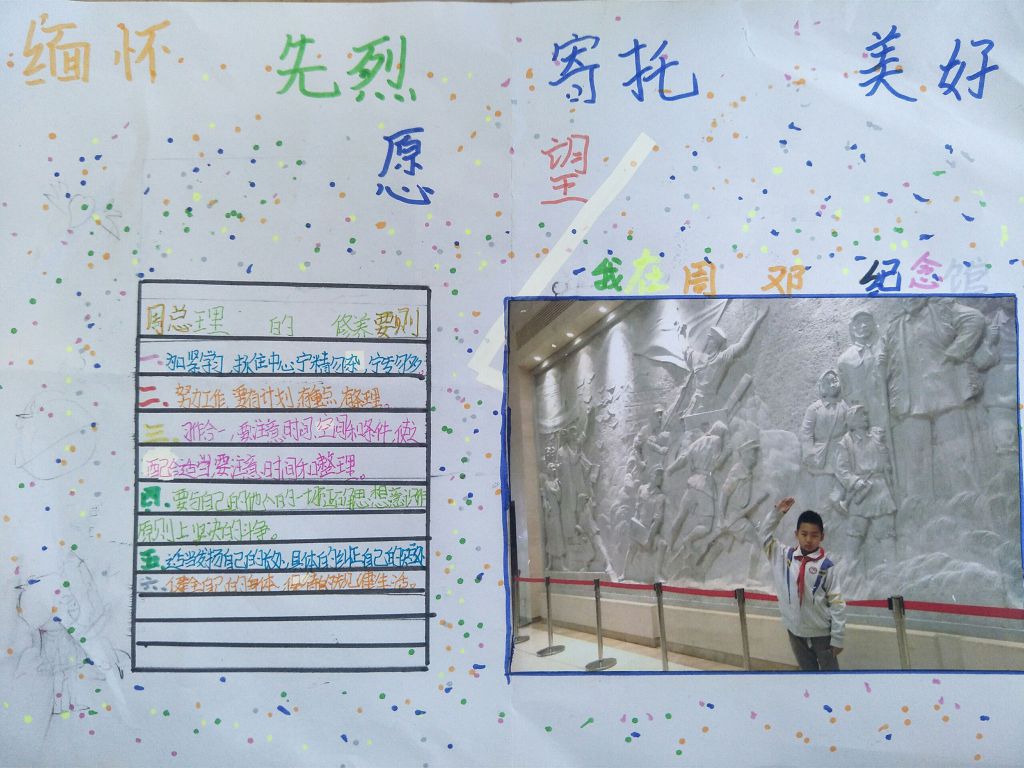 缅怀 先烈 寄托 美好
愿 望
我在周 邓 纪念馆
周总理 的 修养要则
一、加紧学习,抓住中心,宁精勿杂,宁专勿多。
二、努力工作,要有计划,有重点,有整理。
三、习作合一,要注意时间、空间和条件,使之
配合适当,要注意时间和整理。
四、要与自己的他人的一切 思想意识作
原则上坚决的斗争。
五、适当发扬自己的长处,具体的纠正自己的短处
六、健全自己的身体,保持 规律生活。